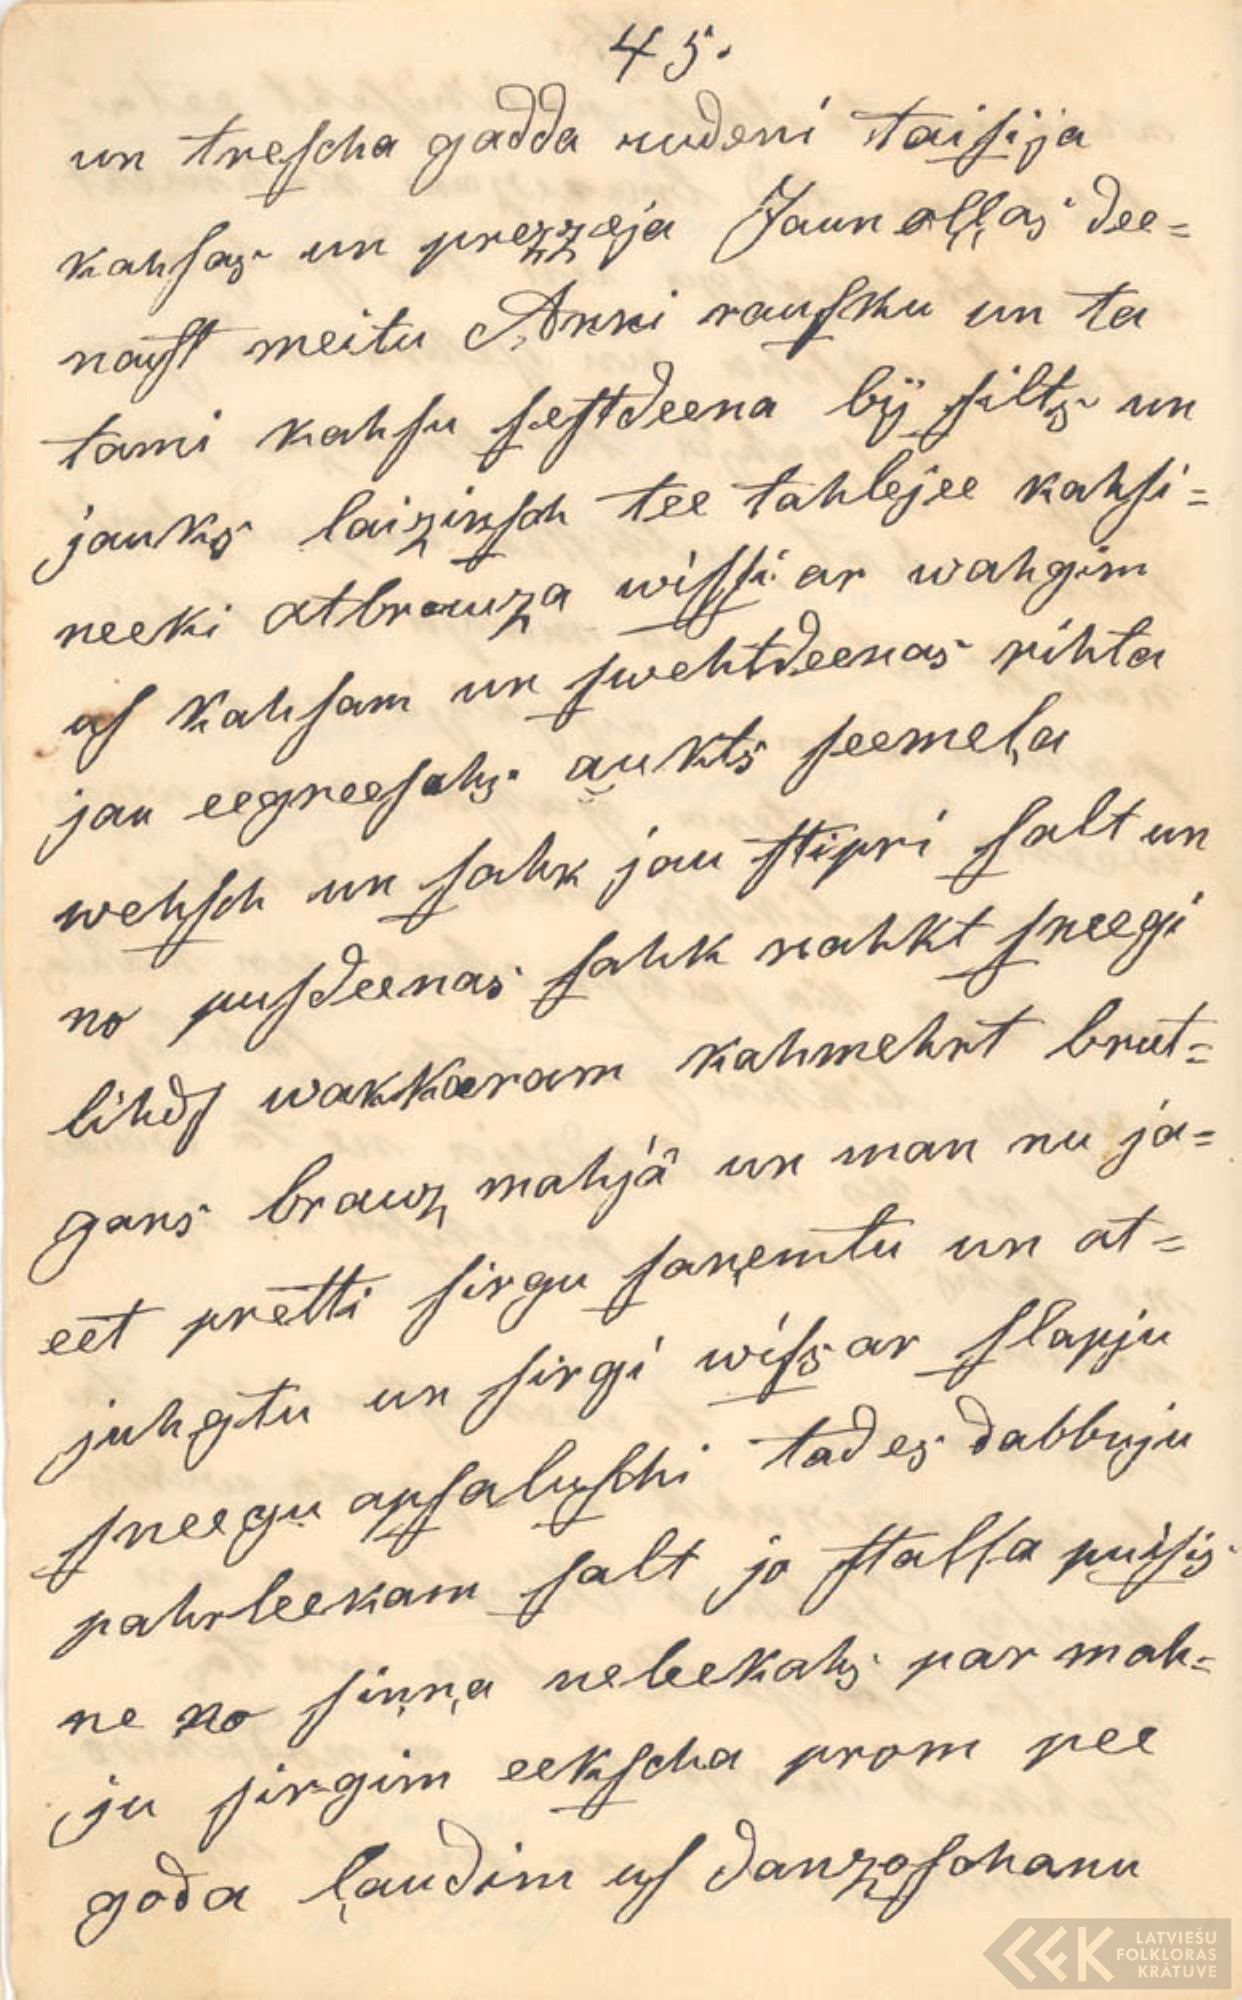 45.
un treſcha gadda rudeni taiſija
kahſas un prezzeja Jaun aļļas dee=
naſt meitu Anni rauſku un ta
tami kahſu ſeſtdeena bÿ ſilts un
jauks laizinſch tee tahlejee kahſi=
neeki atbrauza wiſſi ar wahgim
uſ kahſam un ſwehtdeenas rihta
jau eegreeſahs aukts ſeemeļa
wehſch un ſahk jau ſtipri ſalt un
no puſdeenas ſahk nahkt ſneegi
lihdſ wakkaram kahmehrt brut=
gans brauz mahjâ un man nu ja=
eet pretti ſirgu ſaņemtu un at=
juhgtu un ſirgi wiſs ar ſlapju
ſneegu apſaluſchi tad es dabbuju
pahrleekam ſalt jo ſtaļļa puiſis
ne ko ſiņņa neleekahs par mah=
ju ſirgim eekſcha prom pee
goda ļaudim uſ danzoſchanu
LATVIEŠU
FOLKLORAS
KRĀTUVE